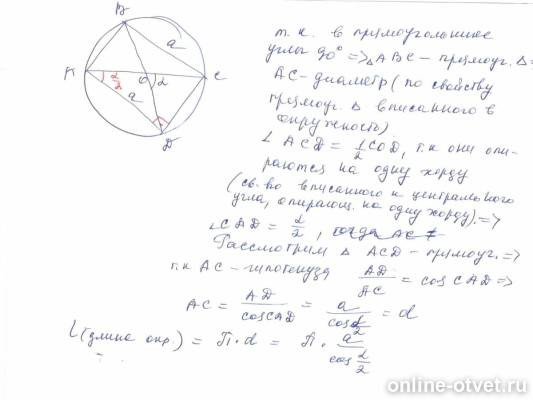 B
a
A
α/2
O
α
C
a
D
т.к. в прямоугольнике
углы 90° => △ABC - прямоуг. △ =
AC - диаметр (по свойству
прямоуг. △ вписанного в
окружность)
∠ACD = 1/2 COD, т.к они опи-
раются на одну хорду
(св-во вписанного и центрального
угла, опирающ. на одну хорду). =>
∠CAD = α/2, тогда AC ≠
Рассмотрим △ ACD - прямоуг. =>
т.к AC - гипотенуза AD/AC = cos CAD =>
AC = AD/cos CAD = a/cos α/2 = d
L (длина окр.) = П · d = П · a/cos α/2
online-otvet.ru